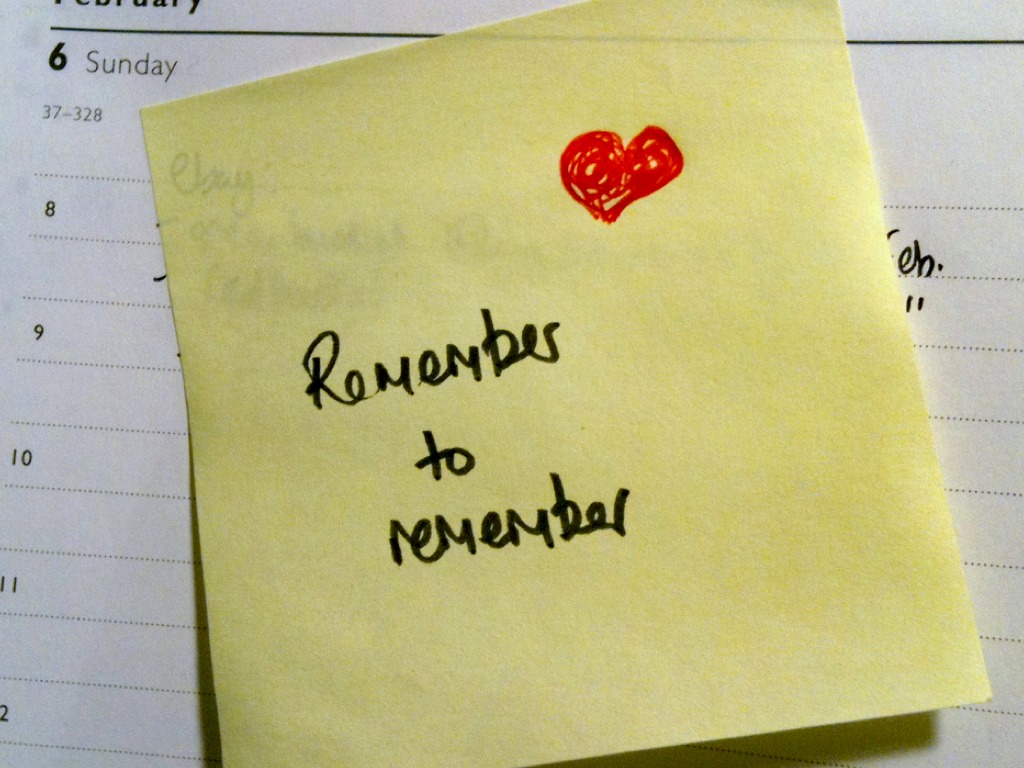 February
6 Sunday
37–328
ebay:
8
eb.
"
9
Remember
to
remember
10
11
2